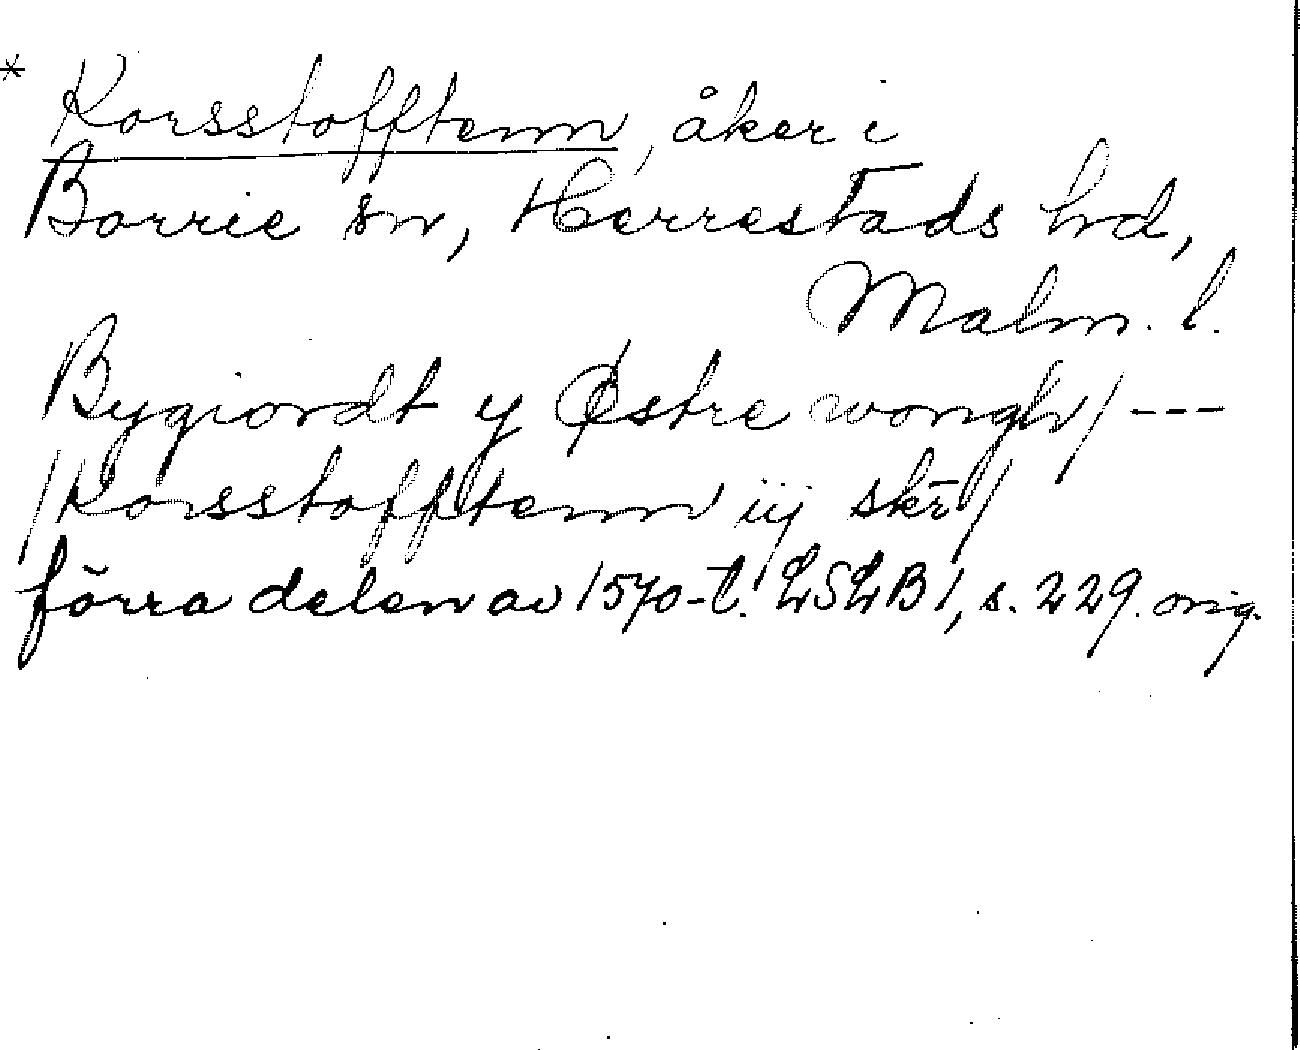 * Korsstofftenn, åker i
Borrie sn, Herrestads hd,
Malm. l.
Bygiordt y Østre wongh/ ---
/Korsstofftenn iij skr̄/
förra delen av 1570-t. LSLB 1, s. 229. orig.